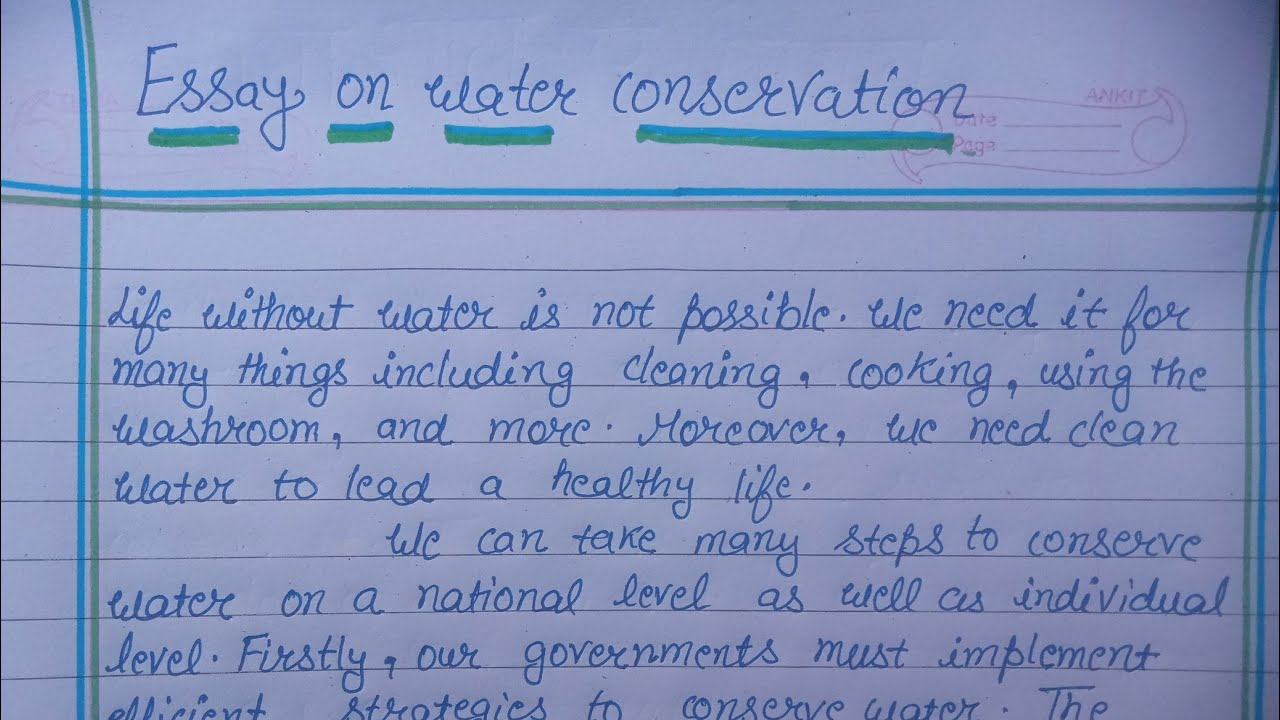 Essay on water conservation
ANKIT
Date
Page
Life without water is not possible. We need it for
many things including cleaning, cooking, using the
washroom, and more. Moreover, we need clean
water to lead a healthy life.
We can take many steps to conserve
water on a national level as well as individual
level. Firstly, our governments must implement
efficient strategies to conserve water. The